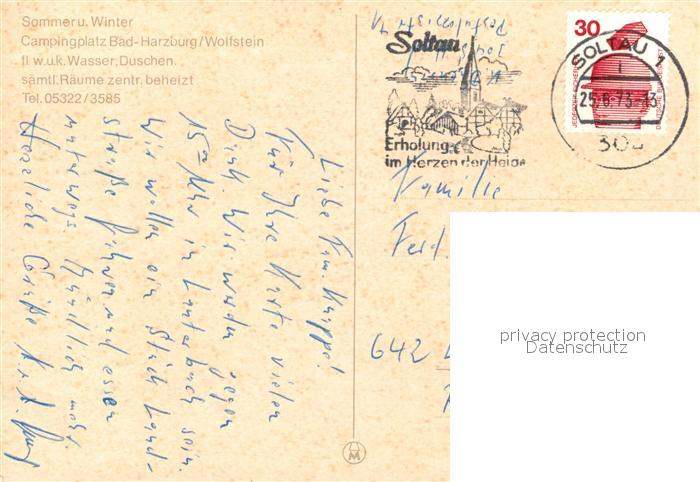 Sommer u. Winter
Campingplatz Bad-Harzburg/Wolfstein
fl w.u.k. Wasser, Duschen.
sämtl. Räume zentr. beheizt
Tel. 05322/3585
Liebe Fam. Knappe!
Für Ihre Karte vielen
Dank. Wir werden gegen
15 Uhr in Lauterbach sein.
Wir wollen ein Stück Land-
straße fahren und essen
unterwegs
Herzliche Grüße
Soltau
Erholung
im Herzen der Heide
30
JEDERZEIT SICHERHEIT
DEUTSCHE BUNDESPOST
SOLTAU 1
25.6.73-13
304
Familie
Ferd.
642
privacy protection
Datenschutz
M